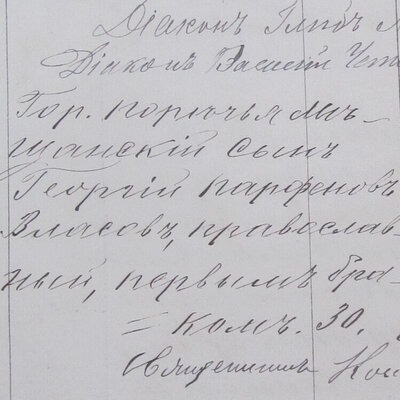 Діаконъ Глѣбъ
Діаконъ Василій
Гор. Порѣчья мѣ-
щанскій сынъ
Георгій Парфеновъ
Власовъ, православ-
ный, первымъ бра-
= комъ. 30.
Священникъ